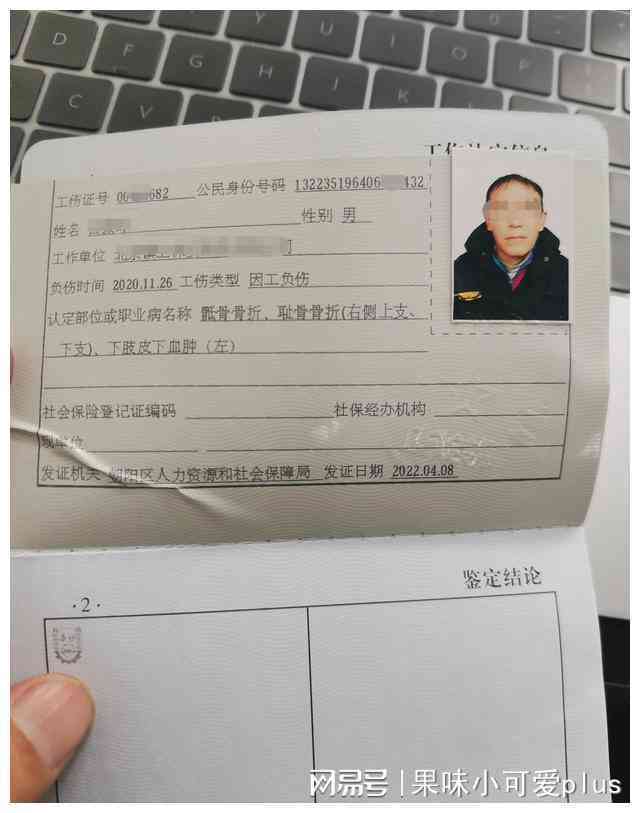 D F G H U I O P
C V B J K L
工伤认定信息
工伤证号 00 682 公民身份号码 132235196406 132
姓名 性别 男
工作单位 北京
负伤时间 2020.11.26 工伤类型 因工负伤
认定部位或职业病名称 骶骨骨折、耻骨骨折(右侧上支、
下支)、下肢皮下血肿(左)
社会保险登记证编码 社保经办机构
现单位
发证机关 朝阳区人力资源和社会保障局 发证日期 2022.04.08
鉴定结论
·2·
网易号 | 果味小可爱plus